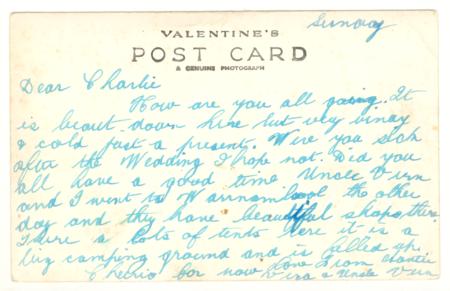 Sunday
VALENTINE'S
POST CARD
A GENUINE PHOTOGRAPH
Dear Charlie
How are you all going. It
is beaut down here but very windy
& cold just a present. Were you sick
after the Wedding I hope not. Did you
all have a good time Uncle Vern
and I went to Warrnambool the other
day and they have beautiful shops there
There a lots of tents here it is a
big camping ground and is filled up
Cheerio for now love from Auntie
Vera & Uncle Vern